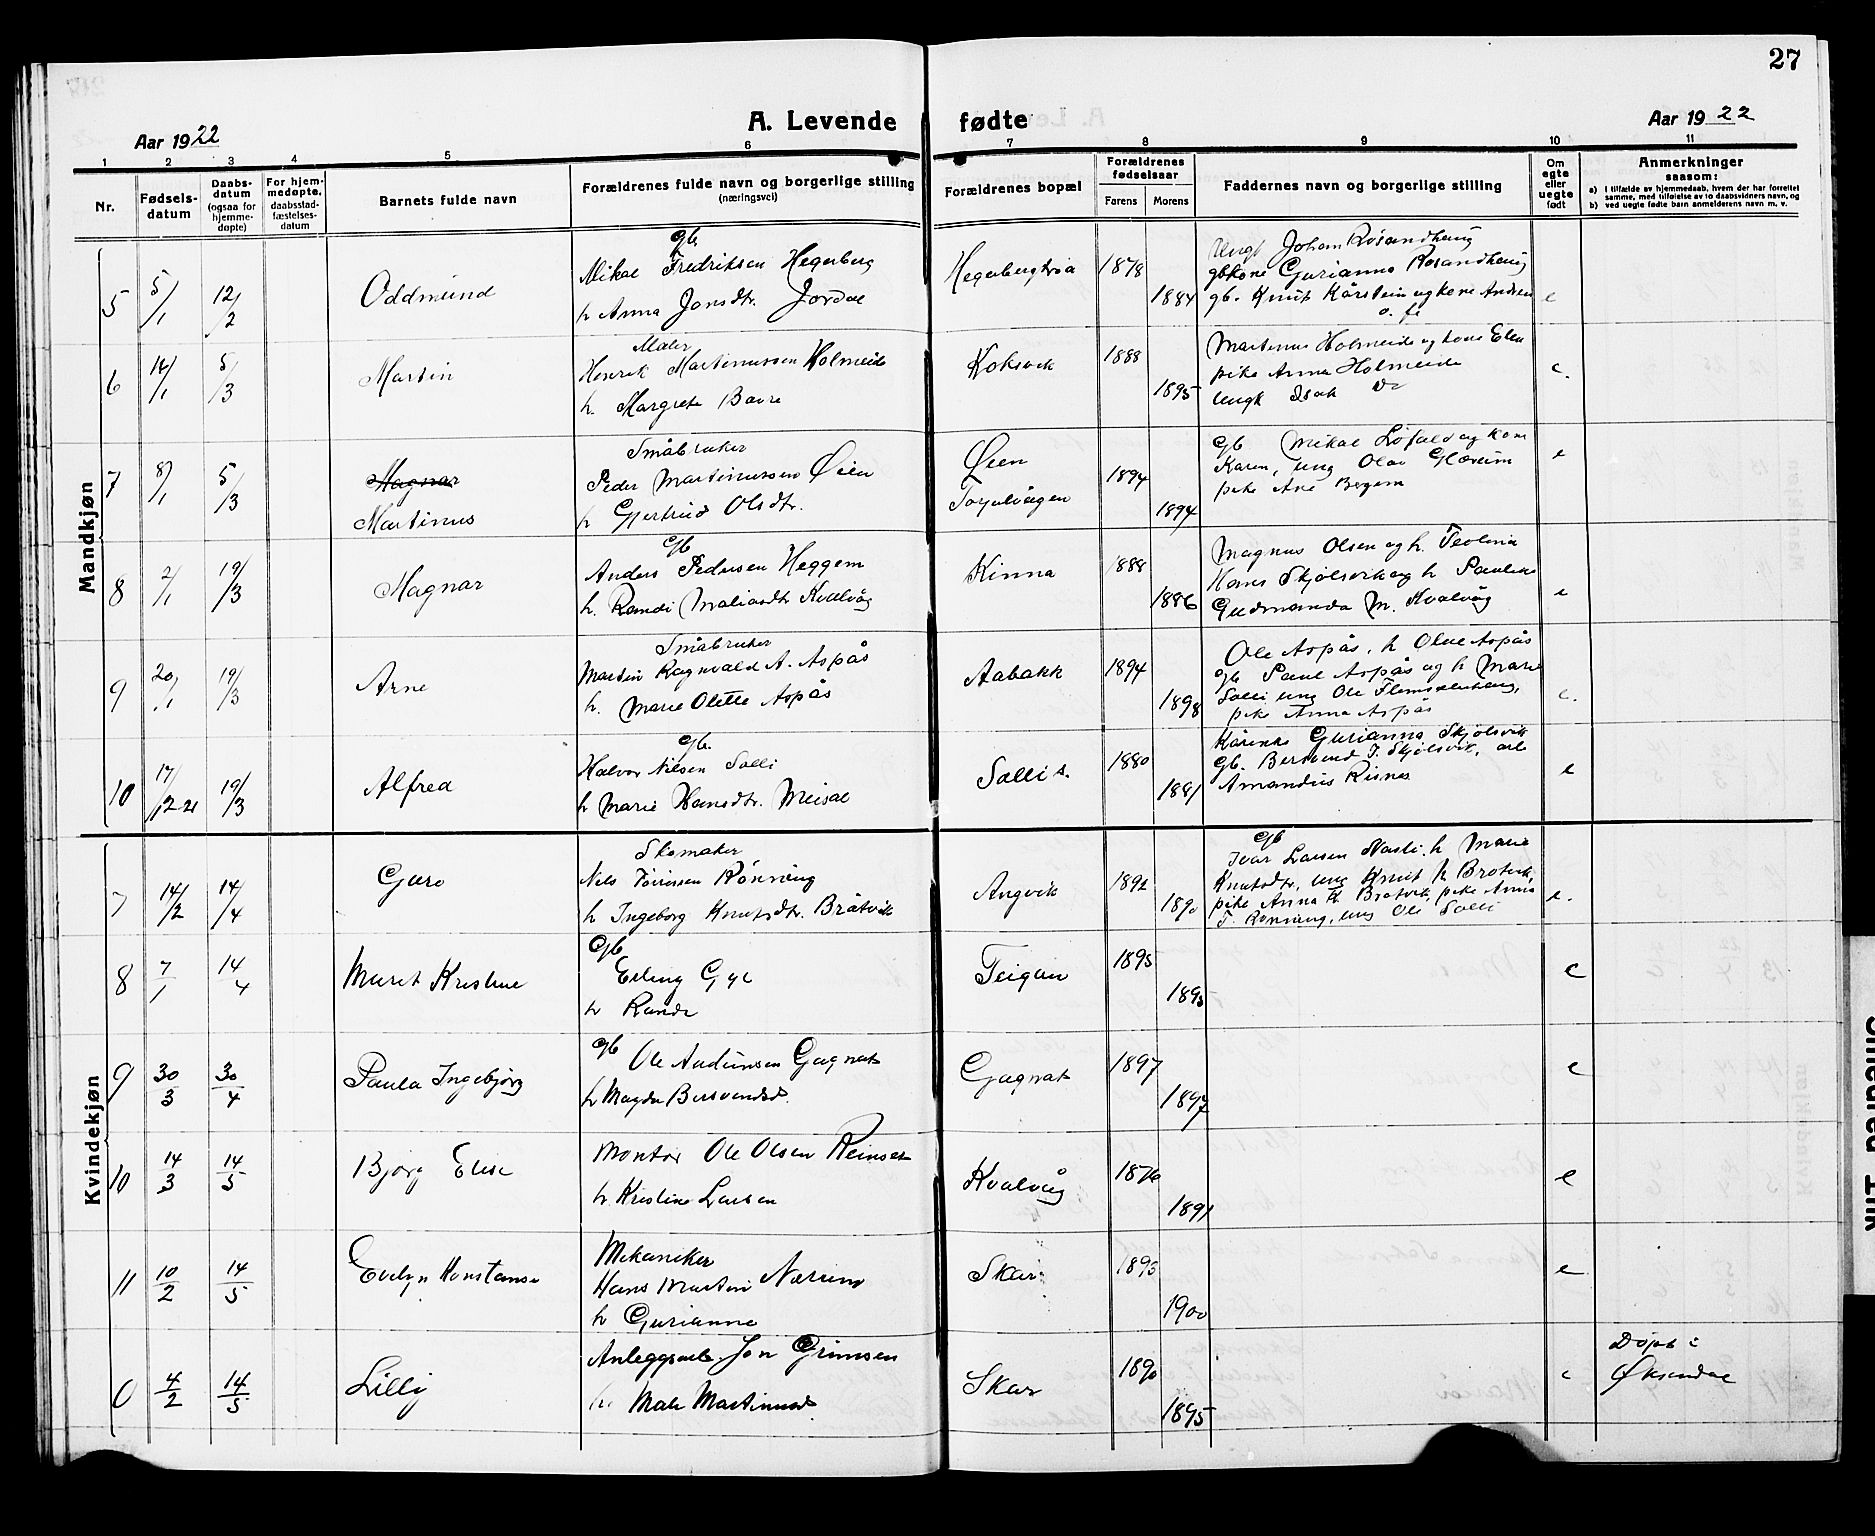 27
Aar 1922
A. Levende fødte
Aar 1922
1 2 3 4 5 6 7 8 9 10 11
Nr.
Fødsels-
datum
Daabs-
datum
(ogsaa for
hjemme-
døpte)
For hjem-
medøpte,
daabsstad-
fæstelses-
datum
Barnets fulde navn
Forældrenes fulde navn og borgerlige stilling
(næringsvei)
Forældrenes bopæl
Forældrenes
fødselsaar
Farens Morens
Faddernes navn og borgerlige stilling
Om
egte
eller
uegte
født
Anmerkninger
saasom:
a) i tilfælde av hjemmedaab, hvem der har forrettet
samme, med tilføielse av to daabsvidners navn, og
b) ved uegte fødte barn anmelderens navn m. v.
Mandkjøn
5 5/1 12/2 Oddmund
gb.
Mikal Fredriksen Hegerberg
h Anna Jonsdtr. Jordal
Hegerbergtrøa 1878 1884
Ungk Johan Rosandhaug
gbkone Gurianna Rosandhaug
gb. Knut Kårstein og kone Andrea
o. fl
e
6 14/1 5/3 Martin
Maler
Henrik Martinussen Holmeide
h. Margrete Bavre
Koksvik 1888 1895
Martinus Holmeide og kone Elen
pike Anna Holmeide
Ungk Isak Do
e.
7 8/1 5/3 Magnar
Martinus
Småbruker
Peder Martinussen Øien
h Gjertrud Olsdtr.
Øien
Torjulvågen 1894 1894
Gb Mikal Løfald og kone
Karen, ung Olav Glærum
pike Ane Bergem
e
8 2/1 19/3 Magnar
Gb
Anders Pedersen Heggem
h. Randi Maliasdtr Kvalvåg
Kinna 1888 1886
Magnus Olsen og h. Teolina
Hans Skjølsvik og h Pauline
Gudmunda M. Kvalvåg
e
9 20/1 19/3 Arne
Småbruker
Martin Ragnvald A. Aspås
h. Marie Olette Aspås
Aabakk 1894 1898
Ole Aspås, h Oline Aspås
gb Paul Aspås og h Marie
Solli ung Ole
pike Anna Aspås
e.
10 17/12 21 19/3 Alfred
Gb.
Halvor Nilsen Solli
h Marie Hansdtr. Meisal
Solli s. 1880 1881
Kårenke Gurianna Skjølsvik
Gb. Bersvend J. Skjølsvik, arb
Amandus Risnes
e
Kvindekjøn
7 14/2 14/4 Guro
Skomaker
Nils Rønning
h Ingeborg Knutsdtr. Bråtvik
Angvik 1892 1890
Gb
Ivar Larsen Nasti, h Marie
Knutsdtr, ung Knut K Brøtvik,
pike Anna K Brøtvik, pike Anna
T. Rønning, ung Ole Solli
e.
8 7/1 14/4 Maret Kristine
Gb
Erling Gyl
h Randi
Teigen 1895 1895
e
9 30/3 30/4 Paula Ingebjørg
Gb Ole Audunsen Gagnat
h Magda Bersvendsd.
Gagnat 1897 1897
e
10 14/3 14/5 Bjørg Elise
Montør Ole Olsen Reinset
h. Kristine Larsen
Kvalvåg 1876 1891
e
11 10/2 14/5 Evelyn Konstanse
Mekaniker
Hans Martin Nærum
h Gurianna
Skar 1893 1900
e
0 4/2 14/5 Lilly
Anleggsarb. Jon Grimsen
h. Mali Martinusd
Skar 1890 1895
e
Døpt i
Øksendal